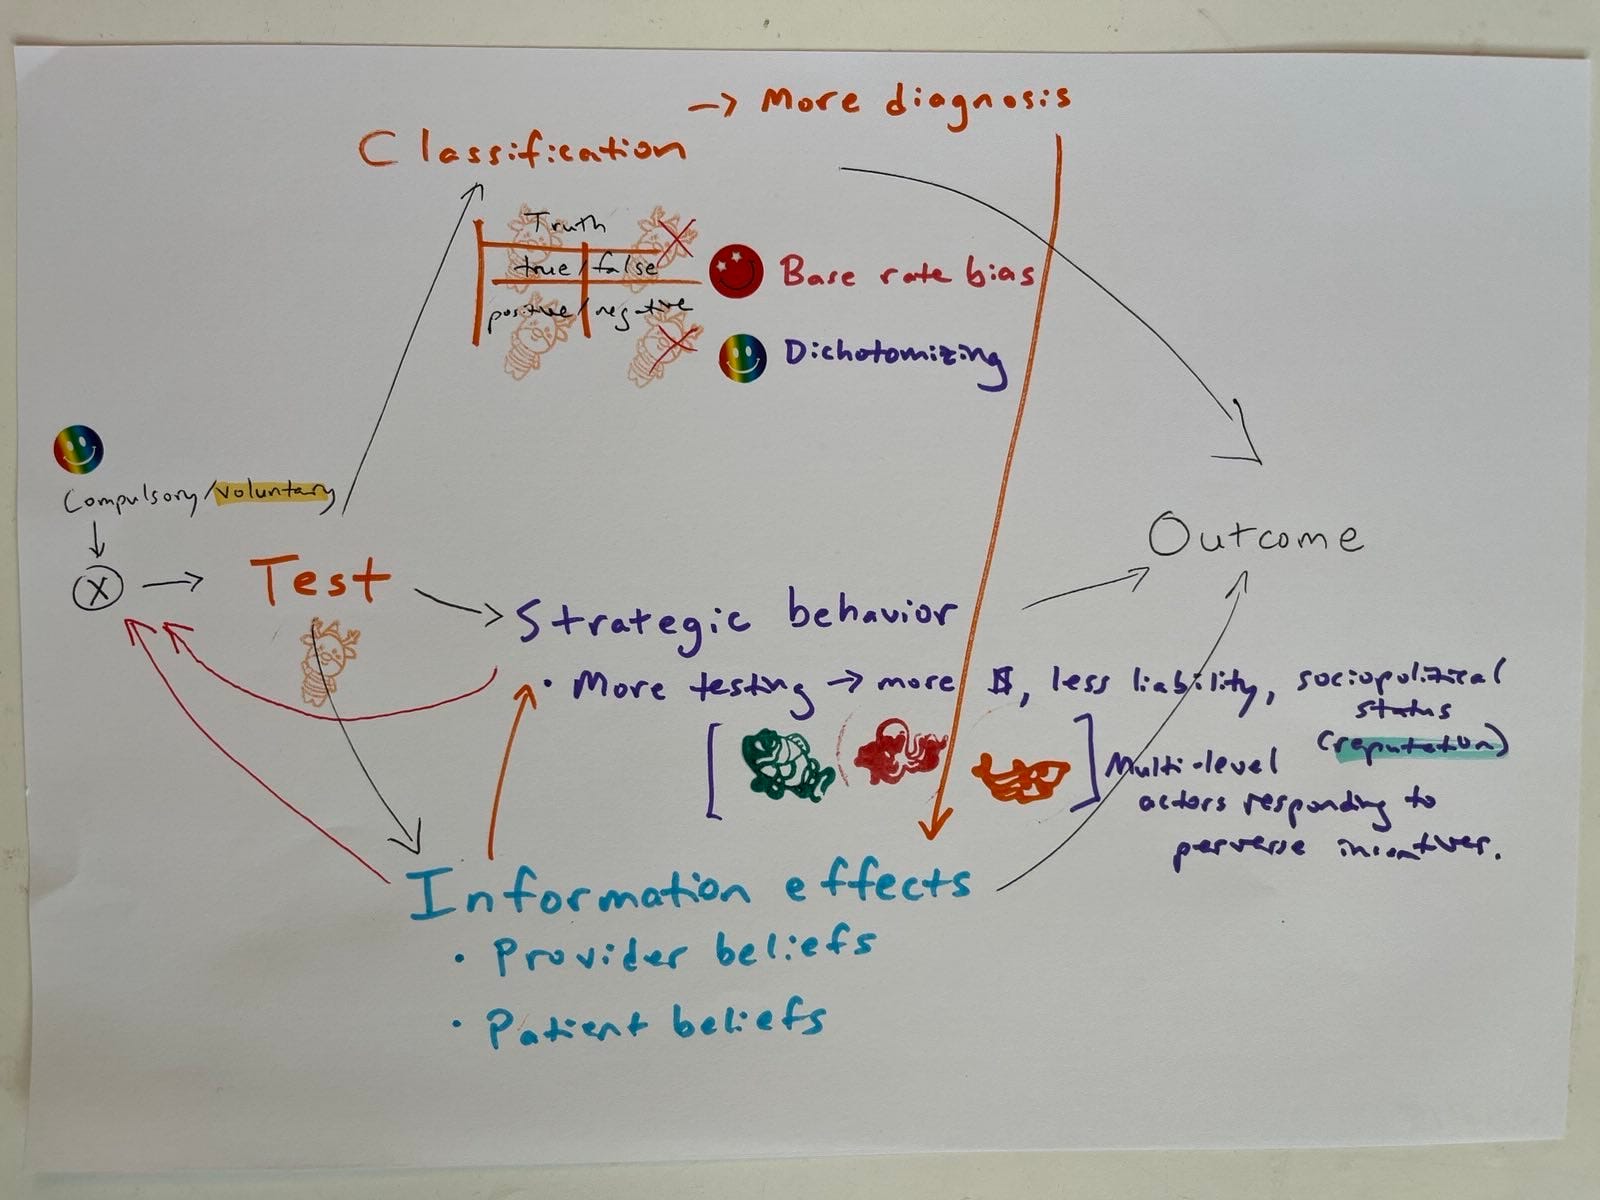 → More diagnosis
Classification
Truth
true / false
positive / negative
Base rate bias
Dichotomizing
Compulsory / voluntary
X → Test
Outcome
Strategic behavior
• More testing → more $, less liability, sociopolitical
status
(reputation)
Multi-level
actors responding to
perverse incentives.
Information effects
• Provider beliefs
• Patient beliefs